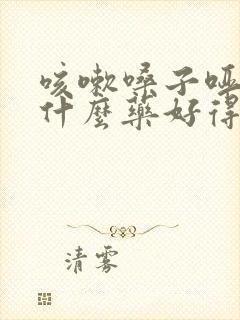 咳嗽嗓子哑
什麼藥好得
清雾